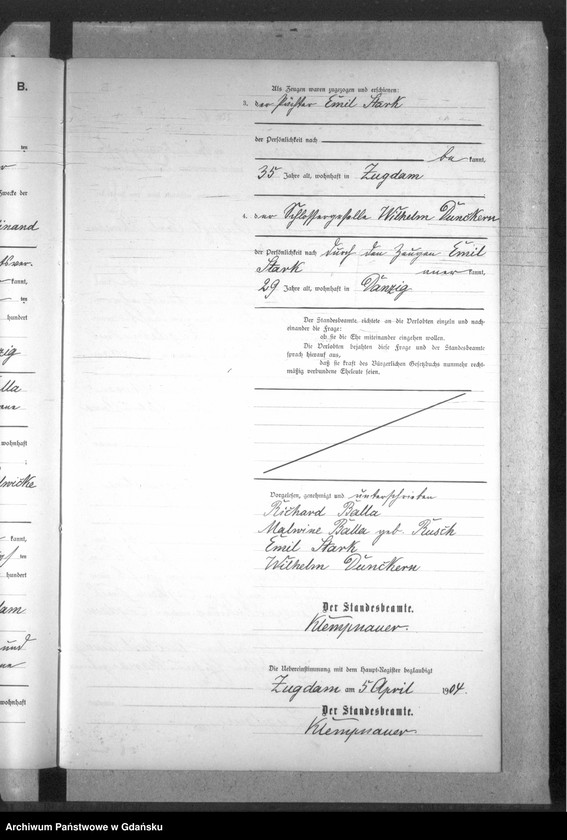 B.
ten
r
Zwecke der
inand
tsver.
kannt,
ten
hundert
zig
lla
ene
wohnhaft
lwicke
kannt,
hundert
dam
und
ne
wohnhaft
Als Zeugen waren zugezogen und erschienen:
3. der Pächter Emil Stark
der Persönlichkeit nach
be kannt,
35 Jahre alt, wohnhaft in Zugdam
4. der Schlossergeselle Wilhelm Dunckern
der Persönlichkeit nach durch den Zeugen Emil
Stark aner kannt,
29 Jahre alt, wohnhaft in Danzig
Der Standesbeamte richtete an die Verlobten einzeln und nach-
einander die Frage:
ob sie die Ehe miteinander eingehen wollen.
Die Verlobten bejahten diese Frage und der Standesbeamte
sprach hierauf aus,
daß sie kraft des Bürgerlichen Gesetzbuchs nunmehr recht-
mäßig verbundene Eheleute seien.
Vorgelesen, genehmigt und unterschrieben
Richard Balla
Malwine Balla geb. Rusch
Emil Stark
Wilhelm Dunckern
Der Standesbeamte.
Klempnauer.
Die Uebereinstimmung mit dem Haupt-Register beglaubigt
Zugdam am 5 April 1904.
Der Standesbeamte.
Klempnauer.
Archiwum Państwowe w Gdańsku